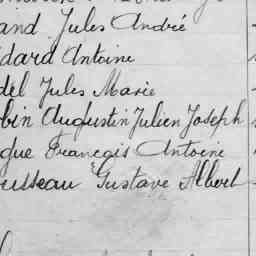 and Jules André
dard Antoine
del Jules Marie
bin Augustin Julien Joseph
gue François Antoine
ousseau Gustave Albert